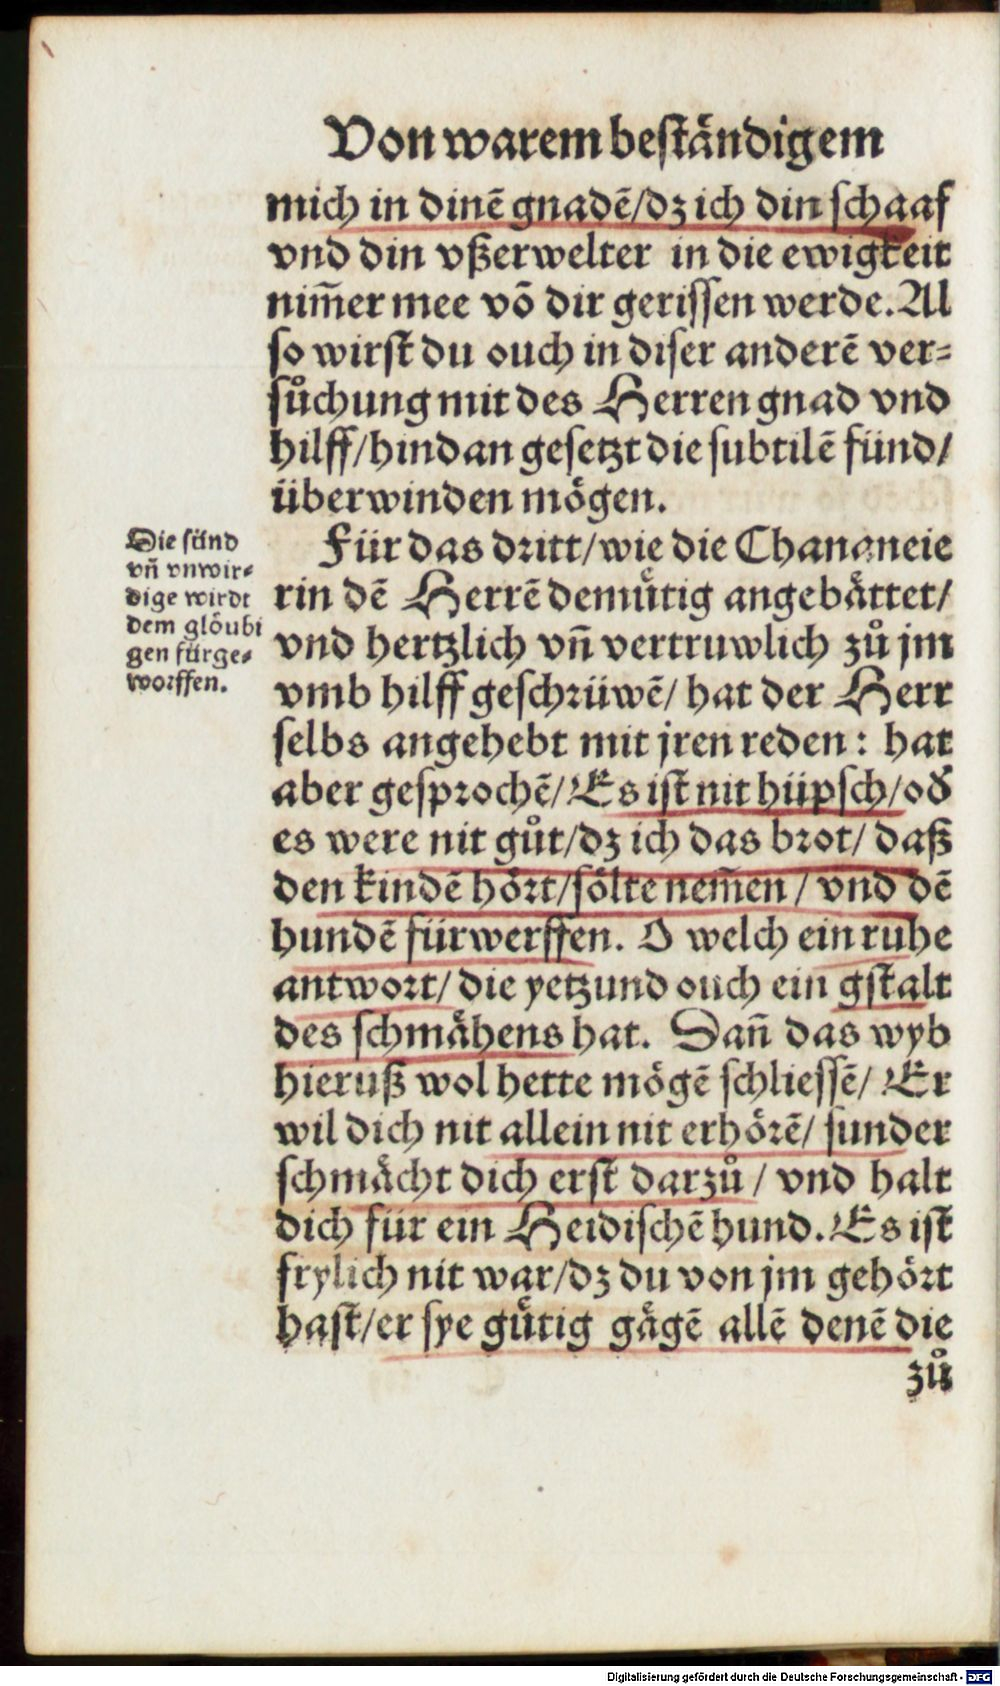 Von warem beständigem
mich in dinē gnadē/dz ich din schaaf
vnd din vßerwelter in die ewigkeit
nim̄er mee vō dir gerissen werde. Al
so wirst du ouch in diser anderē ver⸗
sůchung mit des Herren gnad vnd
hilff/hindan gesetzt die subtilē fünd/
überwinden mögen.
Für das dritt/wie die Chananeie
rin dē Herrē demuͤtig angebättet/
vnd hertzlich vn̄ vertruwlich zů jm
vmb hilff geschrüwē/ hat der Herr
selbs angehebt mit jren reden: hat
aber gesprochē/ Es ist nit hüpsch/od̕
es were nit gůt/dz ich das brot/ daß
den kindē hört/sölte nem̄en / vnd dē
hundē fürwerffen. O welch ein ruhe
antwort/ die yetzund ouch ein gstalt
des schmähens hat. Dan̄ das wyb
hieruß wol hette mögē schliessē/ Er
wil dich nit allein nit erhörē/ sunder
schmächt dich erst darzů / vnd halt
dich für ein Heidischē hund. Es ist
frylich nit war/dz du von jm gehört
hast/er sye guͤtig gägē allē denē die
zů
Die sünd
vn̄ vnwir⸗
dige wirdt
dem glöubi
gen fürge⸗
worffen.
Digitalisierung gefördert durch die Deutsche Forschungsgemeinschaft - DFG